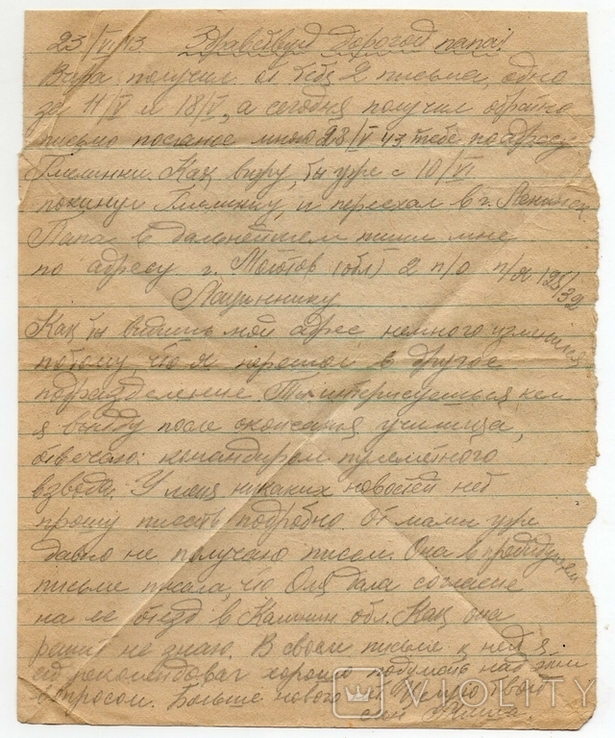 23/VI 43 Здравствуй дорогой папа!
Вчера получил от тебя 2 письма, одно
за 11/V и 18/V, а сегодня получил обратно
письмо посланое мною 28/V 43 тебе по адресу
Как вижу, ты уже с 10/VI
покинул и переехал в г. Ленинск.
Папа в дальнейшем пиши мне
по адресу г. Молотов (обл) 2 п/о п/я
Как ты видишь мой адрес немного изменился
потому, что я перешол в другое
подразделение. Ты интересуешься кем
я выйду после окончания училища,
отвечаю: командиром пулеметного
взвода. У меня никаких новостей нет
прошу писать подробно. От мамы уже
давно не получаю писем. Она в предидущем
письме писала, что Оля дала согласие
на ее отъезд в Калинин. обл. Как она
решит не знаю. В своем письме к ней я
ей рекомендовал хорошо подумать над этим
вопросом. Больше нового нет. Целую твой
сын
VIOLITY